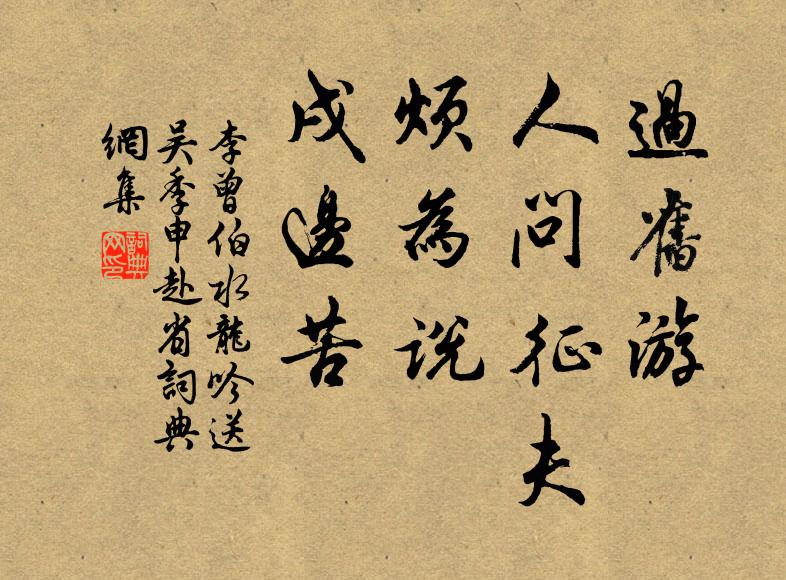 過舊游
人問征夫
煩為説
戍邊苦
李曾伯水龍吟送
吳季申赴省詞典
網集
詞典
网印